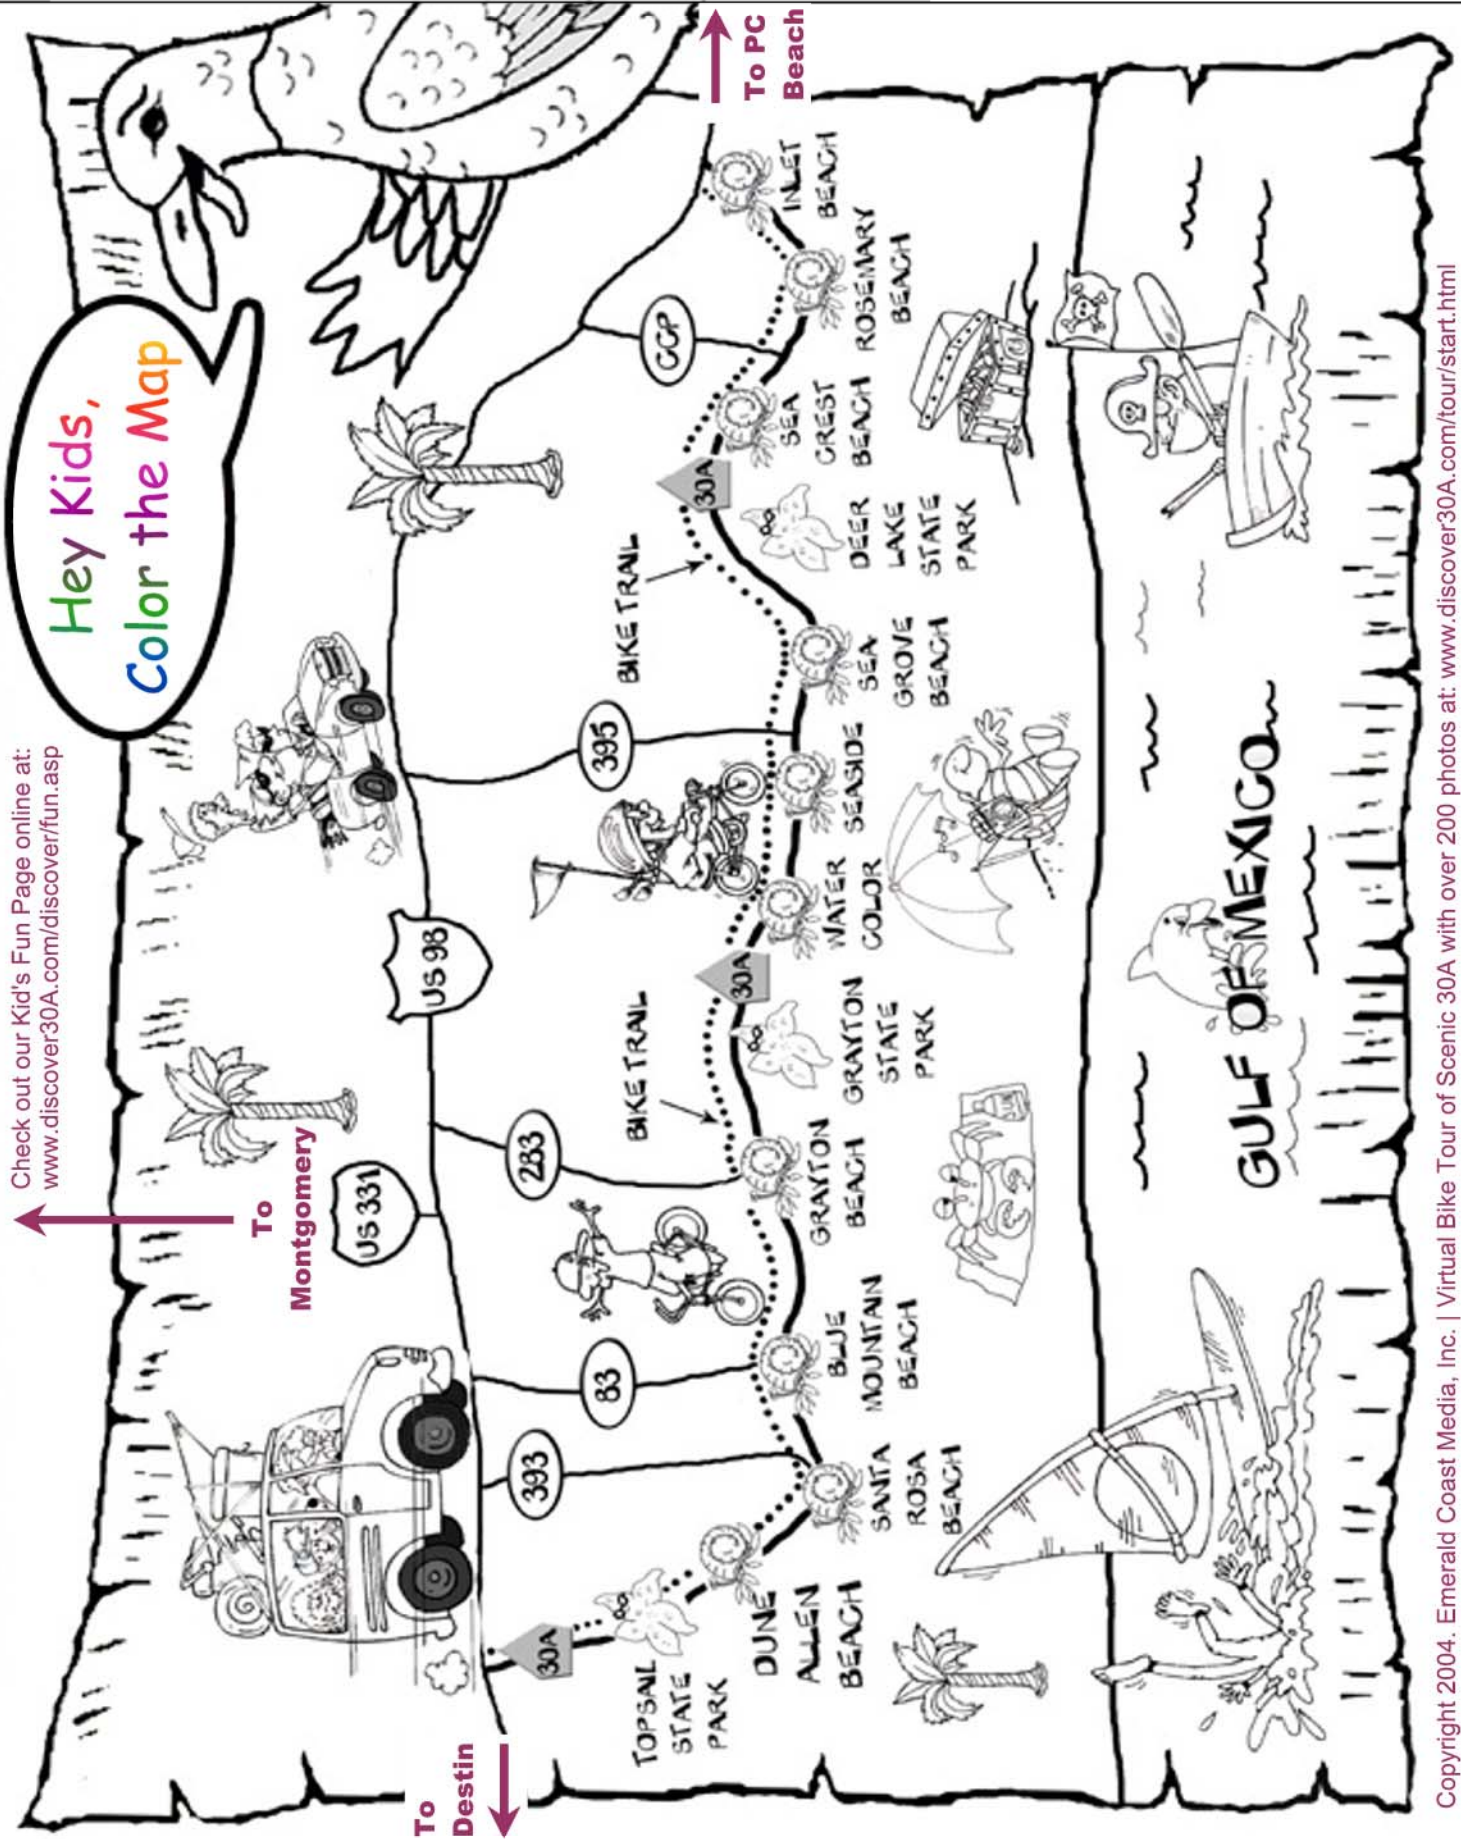 Check out our Kid's Fun Page online at:
www.discover30A.com/discover/fun.asp
Hey Kids,
Color the Map
To
Montgomery
US 331
US 98
To
Destin
To PC
Beach
30A
393
83
283
395
CCP
BIKE TRAIL
BIKE TRAIL
30A
30A
TOPSAIL
STATE
PARK
DUNE
ALLEN
BEACH
SANTA
ROSA
BEACH
BLUE
MOUNTAIN
BEACH
GRAYTON
BEACH
GRAYTON
STATE
PARK
WATER
COLOR
SEASIDE
SEA
GROVE
BEACH
DEER
LAKE
STATE
PARK
SEA
CREST
BEACH
ROSEMARY
BEACH
INLET
BEACH
GULF OF MEXICO
Copyright 2004. Emerald Coast Media, Inc. | Virtual Bike Tour of Scenic 30A with over 200 photos at: www.discover30A.com/tour/start.html